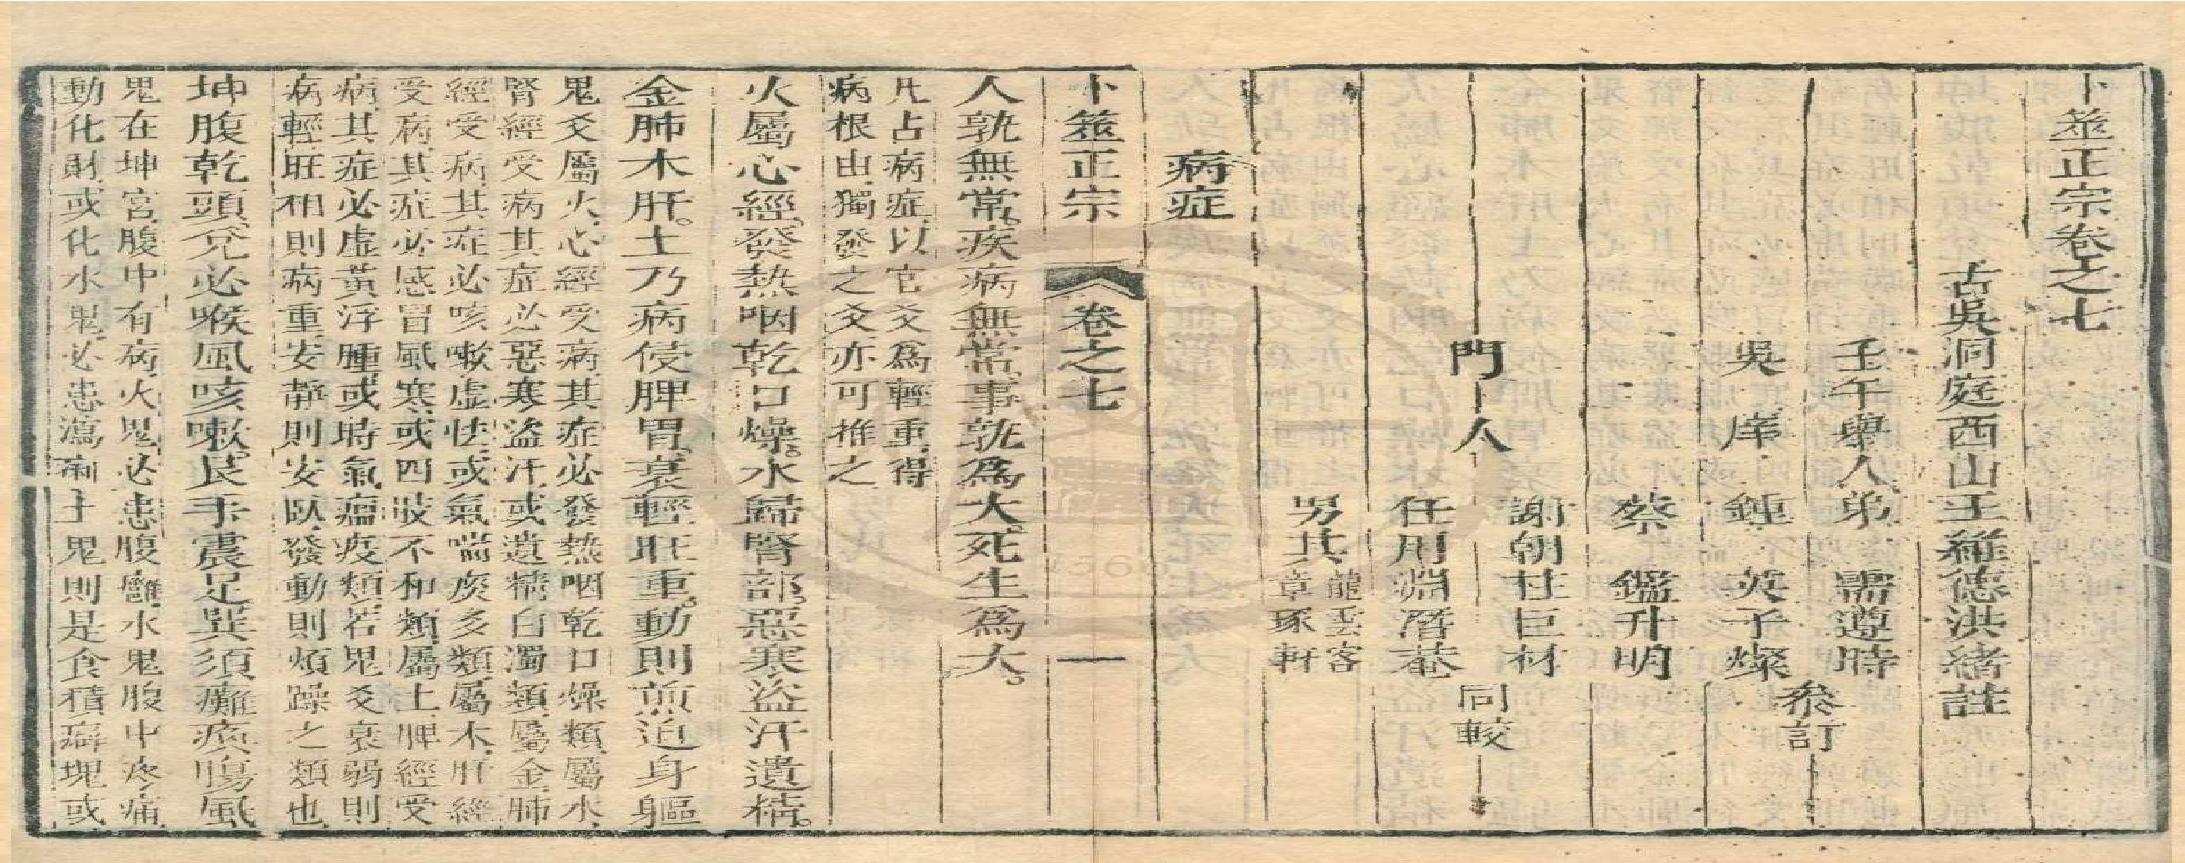 卜筮正宗卷之七
古吳洞庭西山王維德洪緒註
壬午舉人弟 濡遵時
吳 庠 鍾 英子燦 叅訂
蔡 鑑升明
門人 謝朝柱巨材
任用淵潛菴 同較
男其 龍雲客 章琢軒
病症
卜筮正宗 卷之七 一
人孰無常疾病無常事孰為大死生為大。
凡占病症以官爻爲輕重得
病根由獨發之爻亦可推之
火屬心經發熱咽乾口燥。水歸腎部惡寒盜汗遺精。
金肺木肝。土乃病侵脾胃衰輕旺重動則煎迫身軀
鬼爻屬火心經受病其症必發熱咽乾口燥類屬水
腎經受病其症必惡寒盜汗或遺精白濁類屬金肺
經受病其症必咳嗽虛怯或氣喘痰多類屬木肝經
受病其症必感冒風寒或四肢不和類屬土脾經受
病其症必虛黃浮腫或時氣瘟疫類若鬼爻衰弱則
病輕旺相則病重安靜則安臥發動則煩躁之類也
坤腹乾頭兌必喉風咳嗽艮手震足巽須癱瘓腸風
鬼在坤宮腹中有病火鬼必患腹癰水鬼腹中疼痛
動化財或化水鬼必患瀉痢土鬼則是食積癖塊或